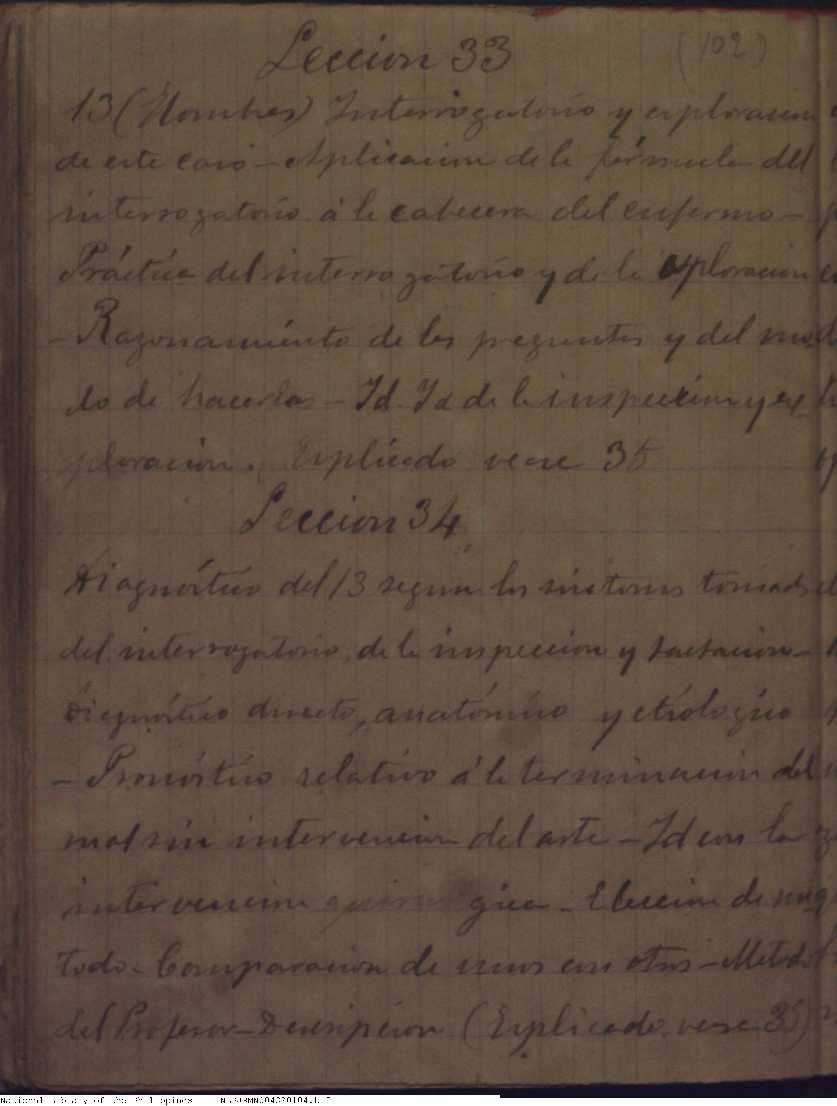 Leccion 33 (102)
13 (Hombres) Interrogatorio y exploracion
de este caso - Aplicacion de la fórmula del
interrogatorio á la cabecera del enfermo -
Práctica del interrogatorio y de la exploracion
- Razonamiento de las preguntas y del mo-
do de hacerlas - Id. Id de la inspeccion y ex-
ploracion. Explicado vease 35
Leccion 34
Diagnóstico del 13 segun los sintomas tomados
del interrogatorio, de la inspeccion y tactacion -
Diagnóstico directo, anatómico y etiologico
- Pronóstico relativo á la terminacion del
mal sin intervencion del arte - Id con la
intervencion quirurgica - Eleccion de me-
todo - Comparacion de unos con otros - Metodo
del Profesor - Descripcion (Explicado vease 35)
National Library of the Philippines